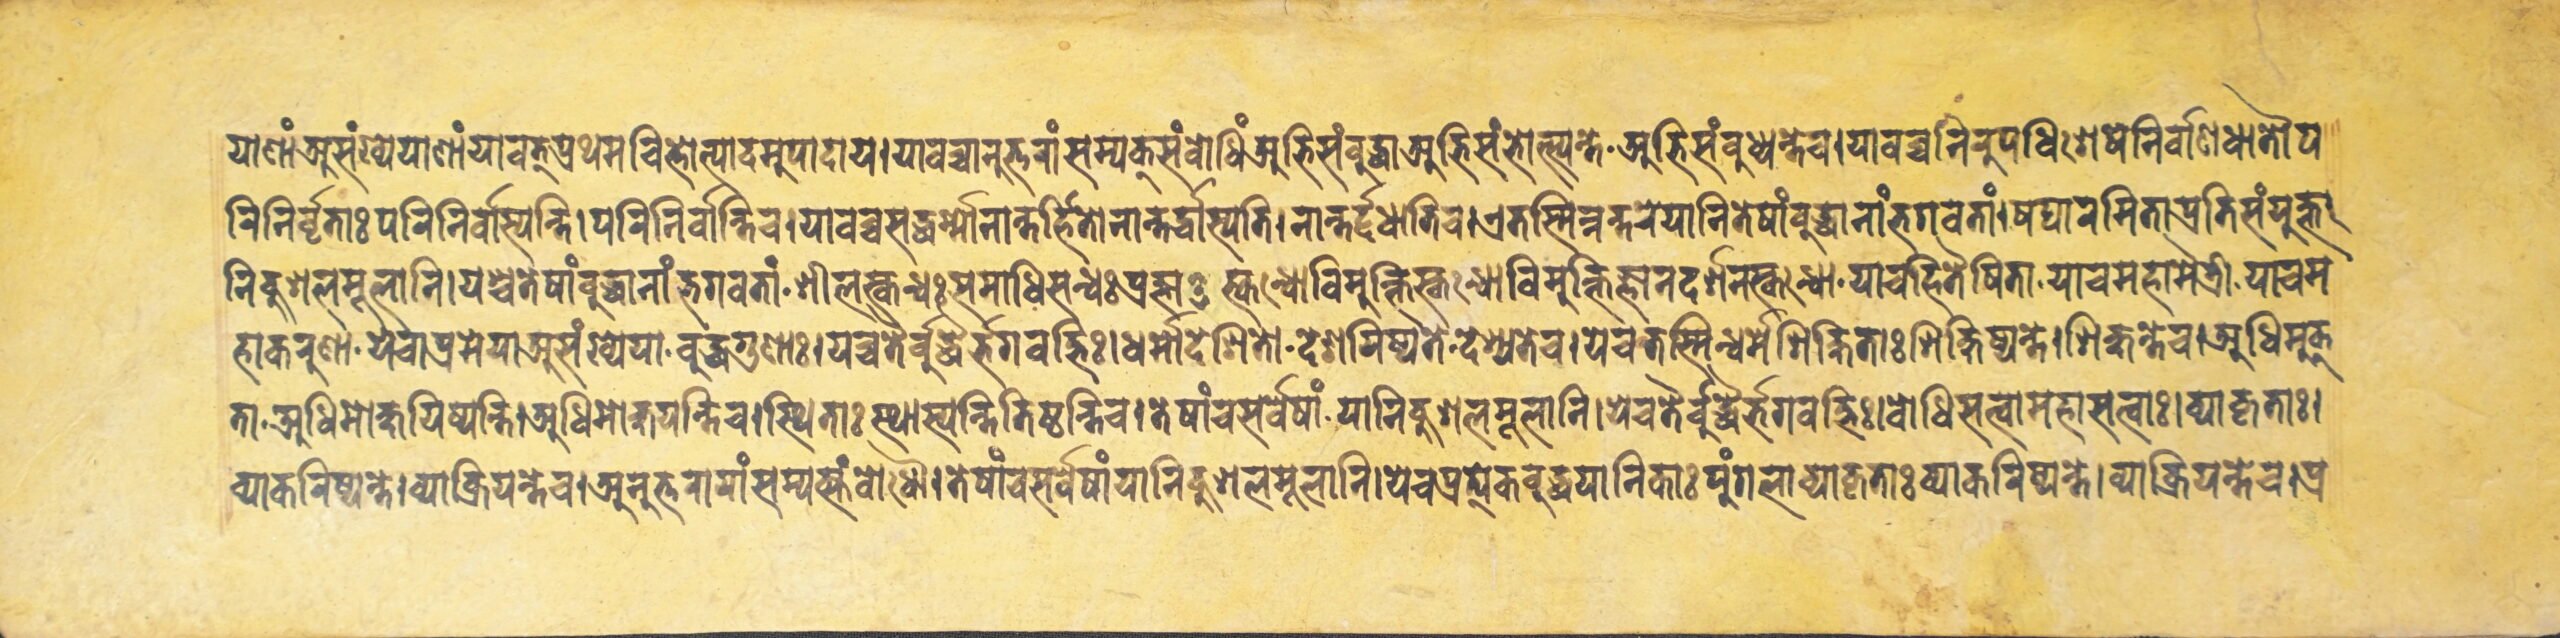 याणां असंख्येयाणां यावत् प्रथमचित्तोत्पादमुपादाय। यावच्चानुत्तरां सम्यक्संबोधिं अभिसंबुद्धा अभिसंभोत्स्यन्ते· अभिसंबुध्यन्ते च। यावच्च निरुपधिशेषे निर्वाणधातौ प
रिनिर्वृताः परिनिर्वास्यन्ति। परिनिर्वान्ति च। यावच्च सद्धर्म्मो नान्तर्हितो नान्तर्द्धास्यति। नान्तर्द्दधाति च। एतस्मिन्नन्तरे यानि तेषां बुद्धानां भगवतां। षट्पारमिताप्रतिसंयुक्ता
नि कुशलमूलानि। यश्च तेषां बुद्धानां भगवतां· शीलस्कन्धः समाधिस्कन्धः प्रज्ञा स्कन्धो विमुक्तिस्कन्धो विमुक्तिज्ञानदर्शनस्कन्धो· या च हितैषिता· या च महामैत्री· या च म
हाकरुणा· ये चाप्रमेया असंख्येया· बुद्धगुणाः। यच्च तैर्बुद्धैर्भगवद्भिः। धर्मो देशितो· देशयिष्यते· देश्यते च। ये च तस्मिन्धर्मे शिक्षिताः शिक्षिष्यन्ते। शिक्षन्ते च। अधिमुक्
ता· अधिमोक्षयिष्यन्ति। अधिमोक्षयन्ति च। स्थिताः स्थास्यन्ति तिष्ठन्ति च। तेषां च सर्वेषां· यानि कुशलमूलानि। ये च तैर्बुद्धैर्भगवद्भिः। बोधिसत्वा महासत्वाः। व्याकृताः।
व्याकरिष्यन्ते। व्याक्रियन्ते च। अनुत्तरायां सम्यक्संबोधौ। तेषां च सर्वेषां यानि कुशलमूलानि। ये च प्रत्येकबुद्धयानिकाः पुंगला व्याकृताः व्याकरिष्यन्ते। व्याक्रियन्ते च। प्र